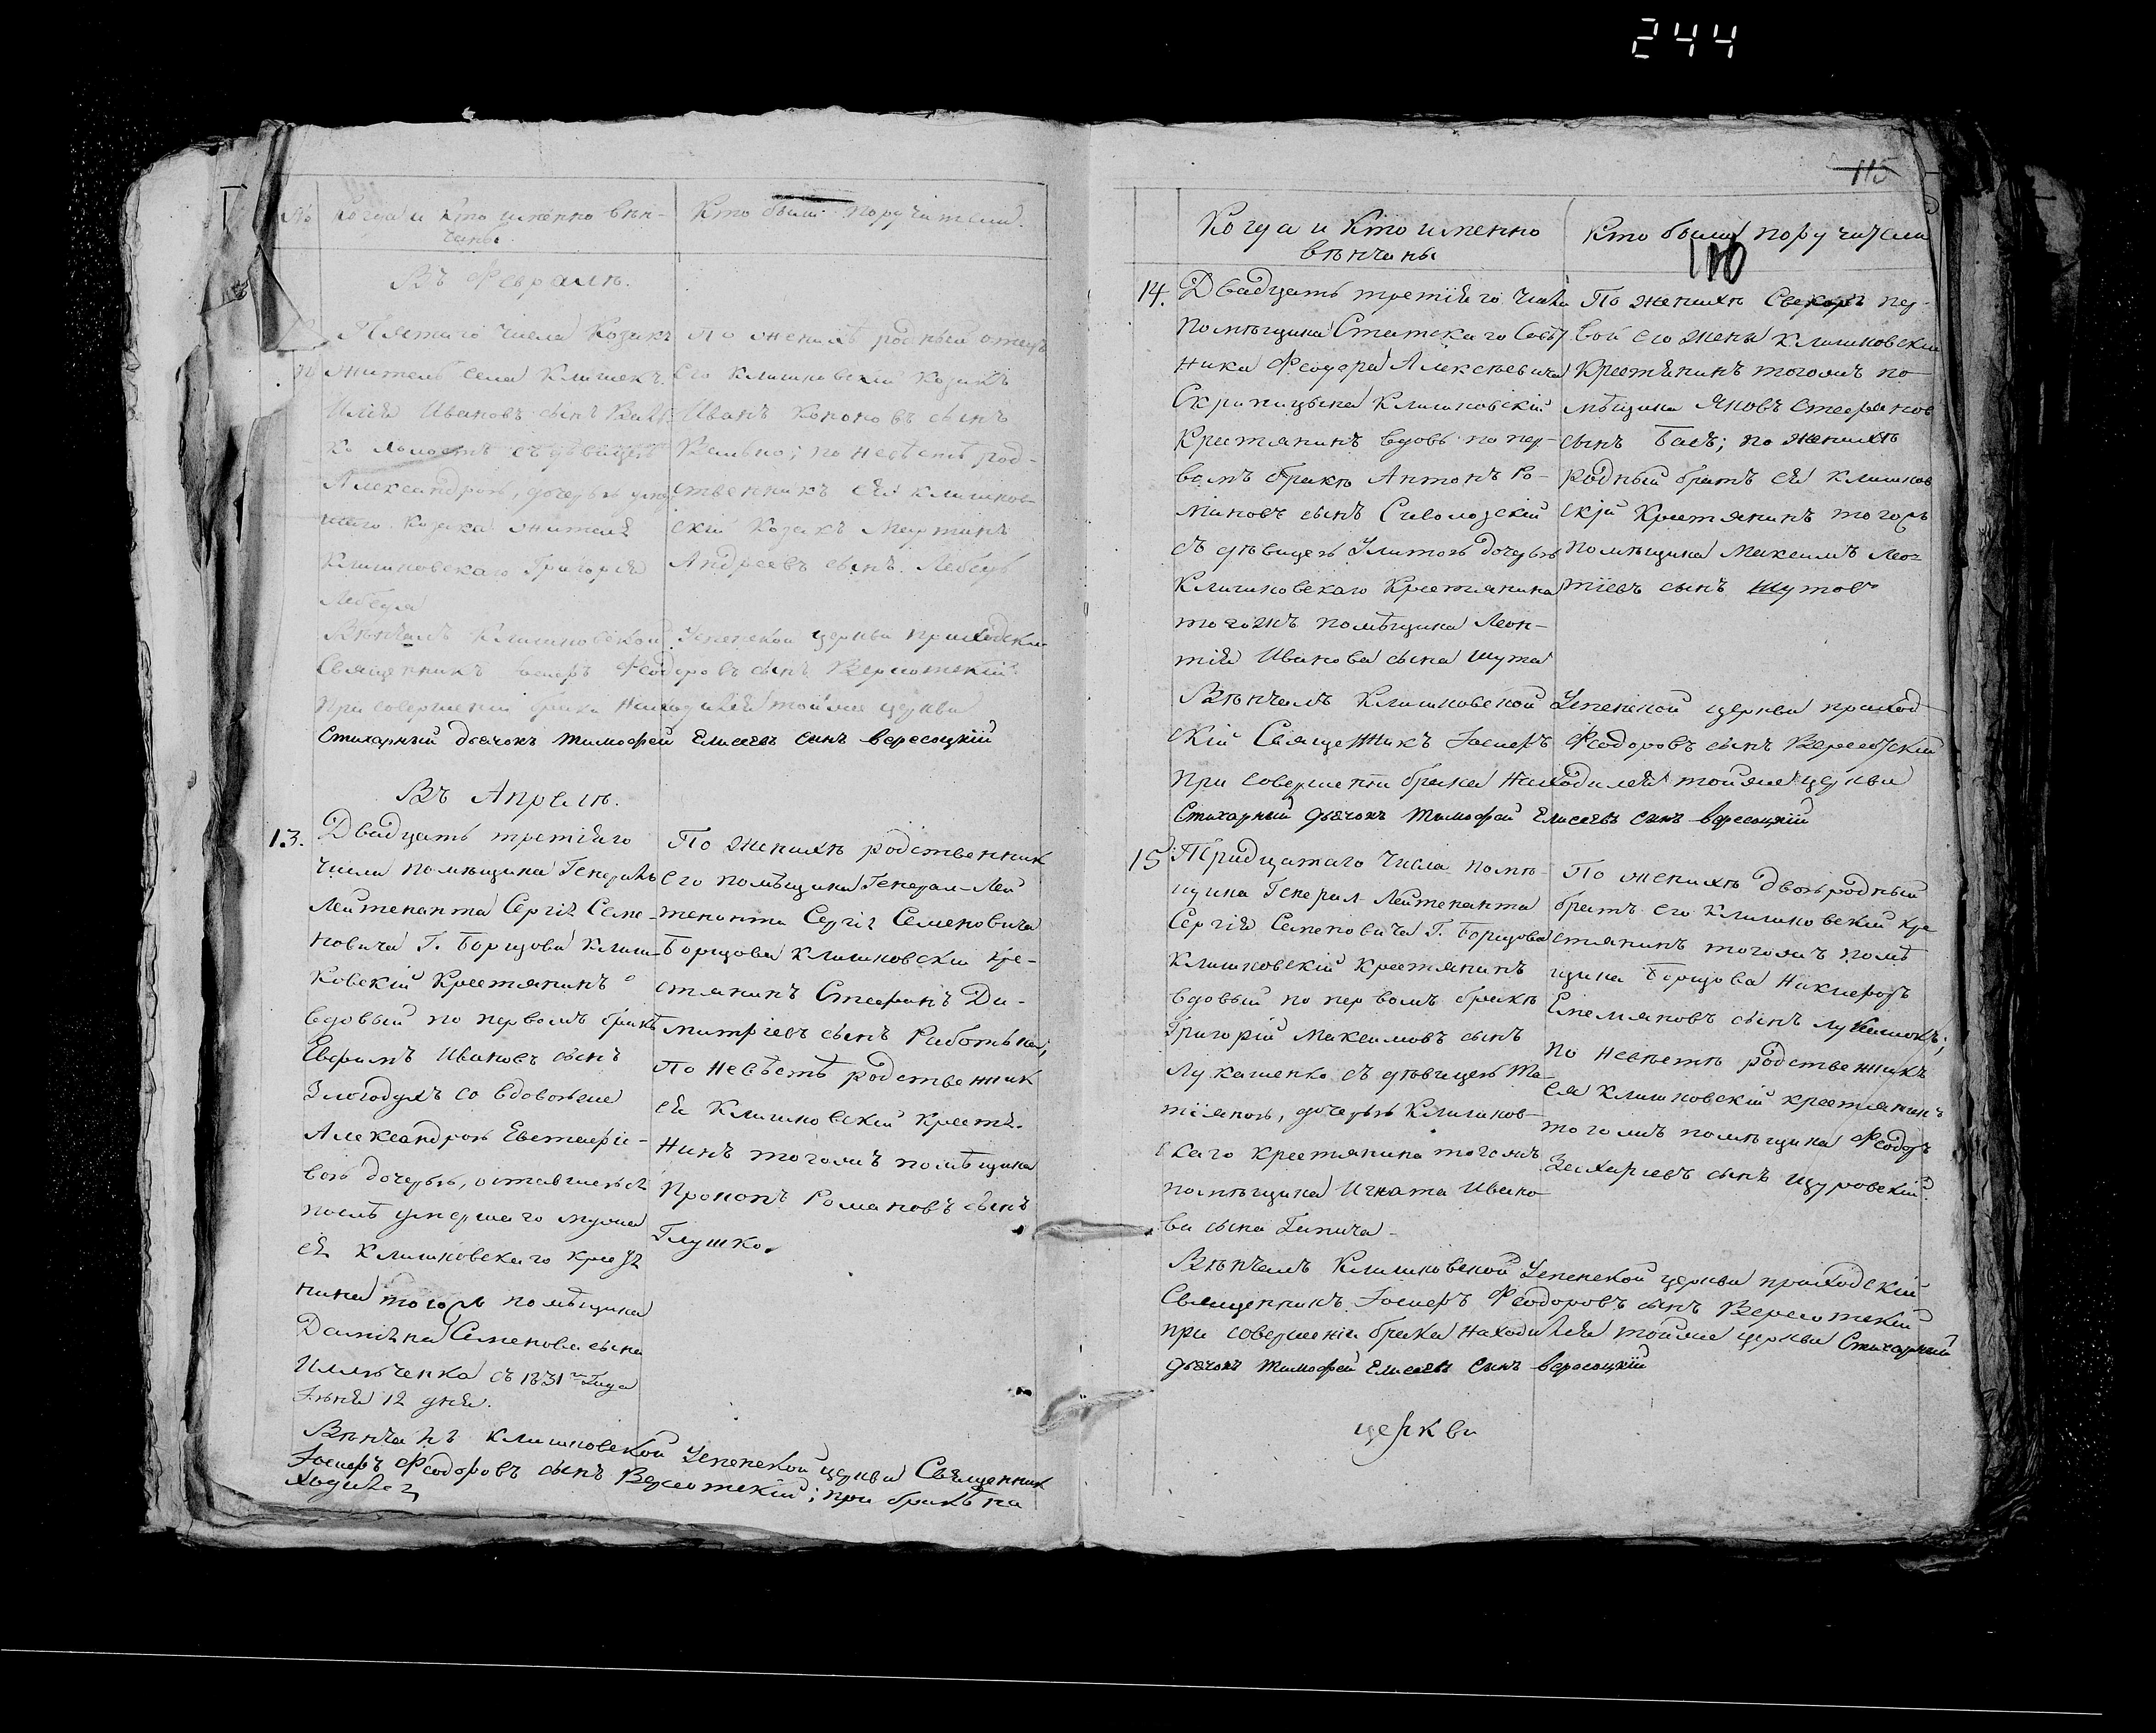 244
115
№
Когда и кто именно вѣн-
чаны.
Кто были поручители.
Въ Февралѣ.
Пятаго числа Козакъ
житель села Клишекъ
Илія Ивановъ сынъ
съ дѣвицею
Александрою, дочерью
Козака жителя
Клишковскаго Григорія
Лебедя
По женихѣ родный отецъ
его Клишковскій Козакъ
Иванъ Кононовъ сынъ
по невѣстѣ род-
ственникъ ея Клишков-
скій Козакъ Мартинъ
Андреевъ сынъ Лебедь
Вѣнчалъ Клишковской Успенской церкви приходскій
Священникъ Іосифъ Феодоровъ сынъ Вересотскій
При совершеніи брака находился тойже церкви
Стихарный дьячокъ Тимофей Елисеевъ сынъ Вересоцкій
Въ Апрелѣ.
13.
Двадцать третіяго
числа помѣщика Генералъ
Лейтенанта Сергія Семе-
новича Г. Борщова Клиш-
ковскій Крестянинъ
вдовый по первомъ бракѣ
Евфимъ Ивановъ сынъ
Злогодухъ со вдовою
Александрою Евстафіе-
вою дочерью, оставшеюся
послѣ умершаго мужа
ея Клишковскаго кресть
нина тогожъ помѣщика
Даміяна Семенова сына
Ильченка съ 1831го Года
12 дня.
По женихѣ родственник
его помѣщика Генерал-Лей
тенанта Сергія Семеновича
Борщова Клишковскій Кре-
стянинъ Стефанъ Ди-
митріевъ сынъ
По невѣстѣ родственник
ея Клишковскій Крестя-
нинъ тогожъ помѣщика
Прокопъ Романовъ сынъ
Глушко.
Вѣнчалъ Клишковской Успенской церкви Священник
Іосифъ Феодоровъ сынъ Вересотскій; при бракѣ на
ходился
Когда и Кто именно
вѣнчаны
Кто были поручители
14.
Двадцать третіяго числа
помѣщика Статскаго Совѣт
ника Феодора Алексѣевича
Скрипицына Клишковскій
Крестянинъ вдовъ по пер-
вомъ бракѣ Антонъ Ро-
мановъ сынъ Сиволозскій
съ дѣвицею Улитою дочерью
Клишковскаго Крестянина
тогожъ помѣщика Леон-
тія Иванова сына Шута
По женихѣ Свекоръ пер-
вой его жены Клишковскій
Крестянинъ тогожъ по-
мѣщика Яковъ Стефановъ
сынъ Басъ; по женихѣ
родный братъ ея Клишков
скій Крестянинъ тогожъ
помѣщика Максимъ Леон-
тіевъ сынъ Шутов
Вѣнчалъ Клишковской Успенской церкви приход-
скій Священникъ Іосифъ Феодоровъ сынъ Вересотскій
При совершеніи брака находился тойже церкви
Стихарный дьячокъ Тимофей Елисеевъ сынъ Вересоцкій
15
Тридцатаго числа помѣ-
щика Генерал-Лейтенанта
Сергія Семеновича Г. Борщова
Клишковскій Крестянинъ
вдовый по первомъ бракѣ
Григорій Максимовъ сынъ
Лукашенко съ дѣвицею Та-
тіяною, дочерью Клишков-
скаго крестянина тогожъ
помѣщика Игната Ивано-
ва сына Гапича
По женихѣ двоюродный
братъ его Клишковскій кре
стянинъ тогожъ помѣ
щика Борщова Никифоръ
Емельяновъ сынъ Лукашокъ;
по невѣстѣ родственникъ
ея Клишковскій крестянинъ
тогожъ помѣщика Феодоръ
Захаріевъ сынъ Щуровскій.
Вѣнчалъ Клишковской Успенской церкви приходскій
Священникъ Іосифъ Феодоровъ сынъ Вересотскій
при совершеніи брака находился тойже церкви Стихарный
дьячокъ Тимофей Елисеевъ сынъ Вересоцкій
церкви